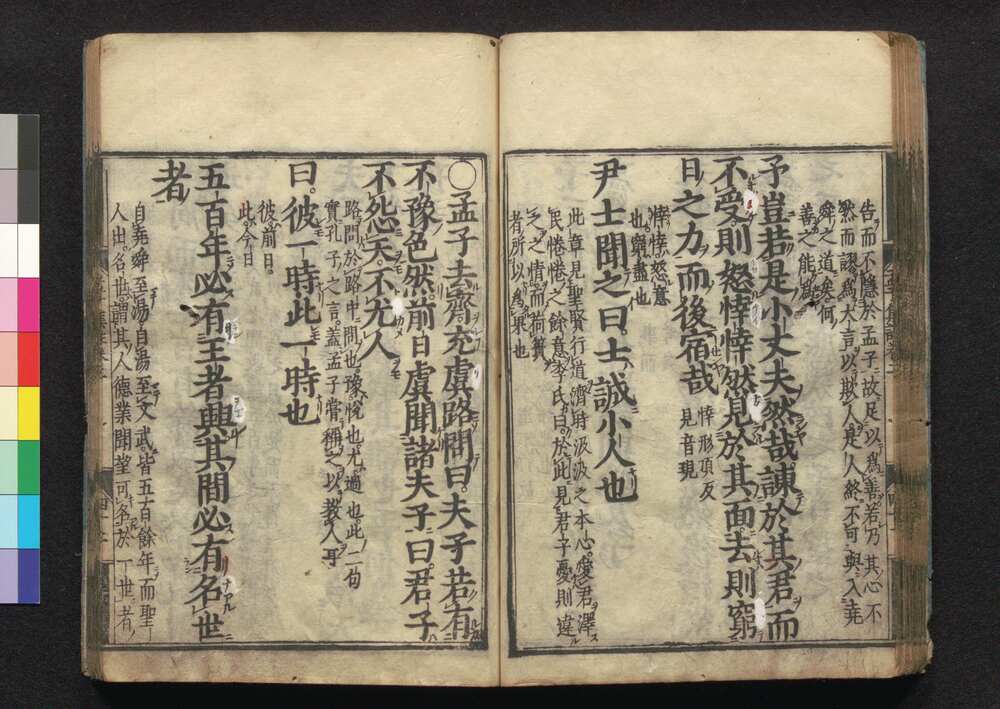 告而不隱於孟子故足以爲善若乃其心不
然而謬爲大言以欺人是人終不可與入堯
舜之道矣何
善之能爲
予豈若是小丈夫然哉諫於其君而
不受則怒悻悻然見於其面去則窮
日之力而後宿哉 悻形頂反
見音現
悻悻怒意
也窮盡也
尹士聞之曰士誠小人也
此章見聖賢行道濟時汲汲之本心愛君澤
民惓惓之餘意李氏曰於此見君子憂則違
之之情而荷蕢
者所以爲果也
○孟子去齊充虞路問曰夫子若有
不豫色然前日虞聞諸夫子曰君子
不怨天不尤人
路問於路中問也豫悅也尤過也此二句
實孔子之言蓋孟子嘗稱之以教人耳
曰彼一時此一時也
彼前日
此今日
五百年必有王者興其間必有名世
者
自堯舜至湯自湯至文武皆五百餘年而聖
人出名世謂其人德業聞望可名於一世者